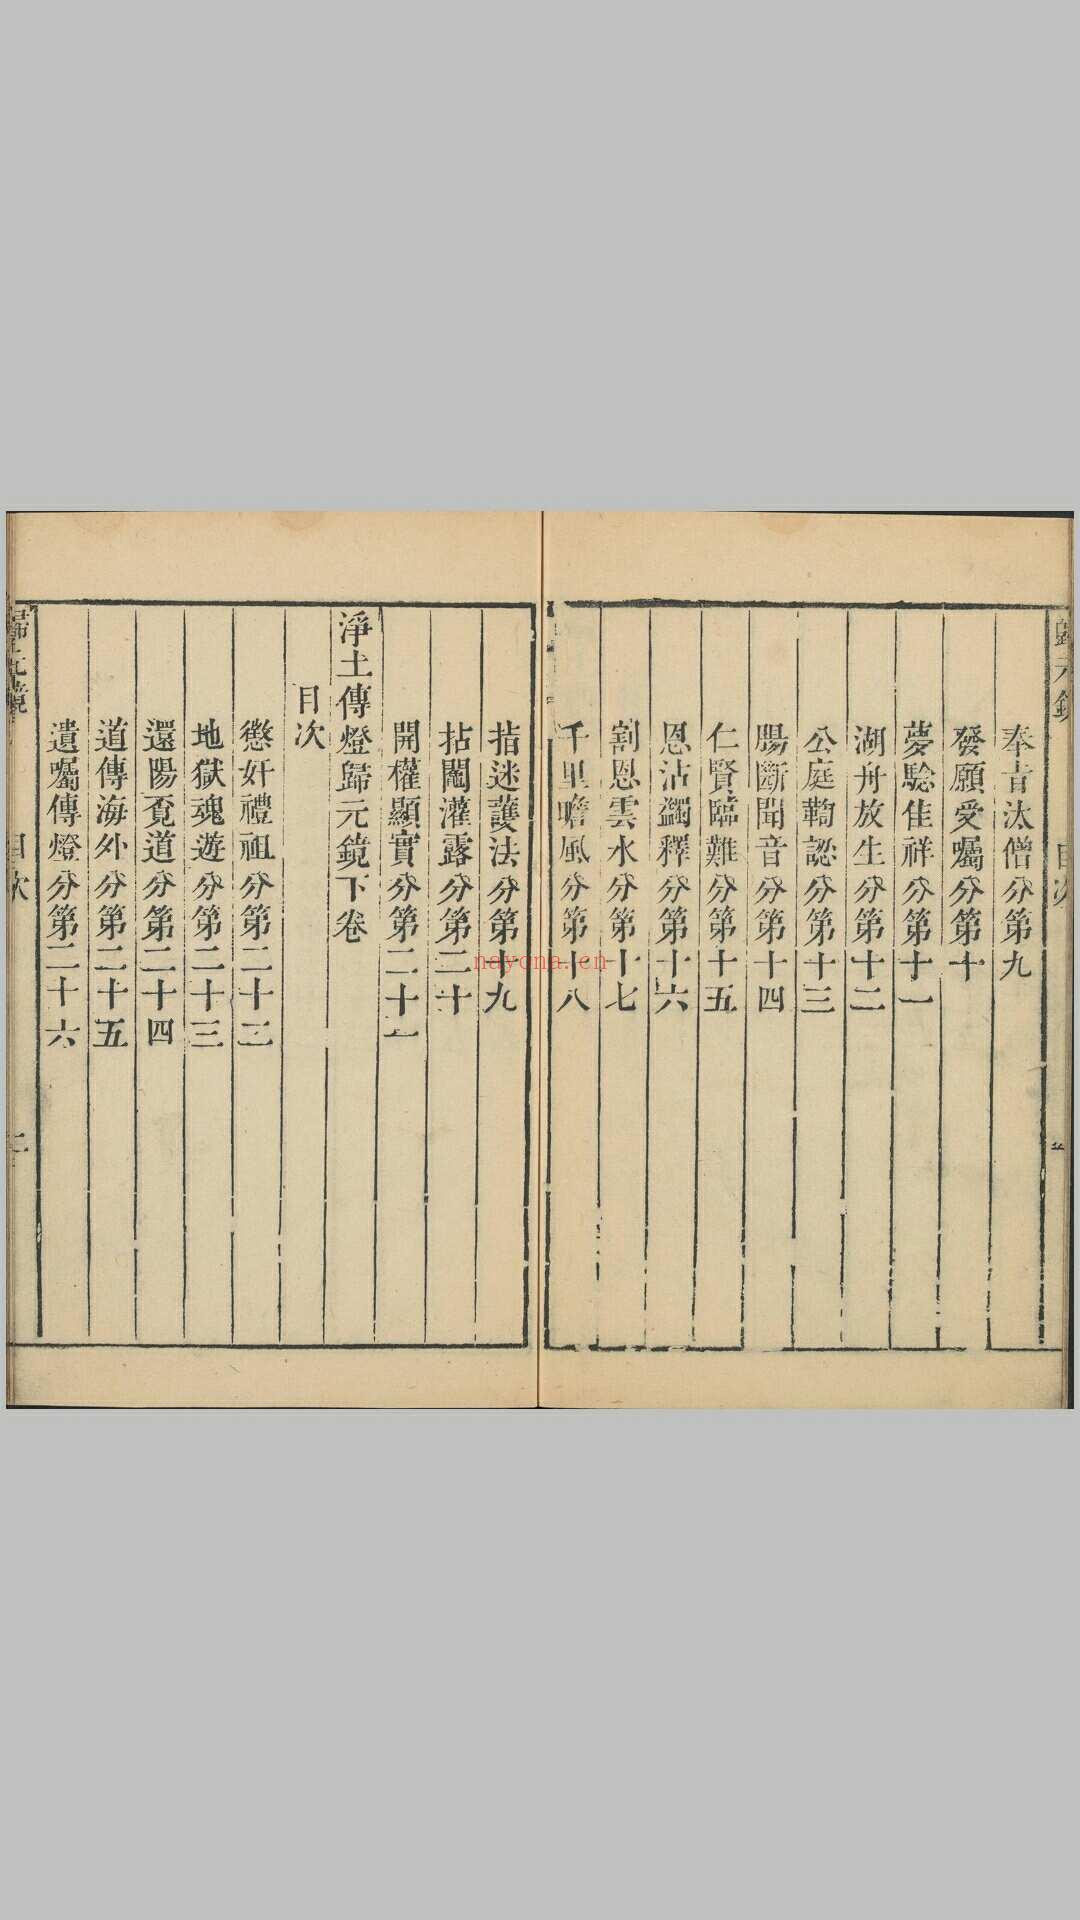 奉旨汰僧分第九
發願受囑分第十
夢騐佳祥分第十一
湖舟放生分第十二
公庭鞫認分第十三
腸斷聞音分第十四
仁賢臨難分第十五
恩沾蠲釋分第十六
割恩雲水分第十七
千里瞻風分第十八
指迷護法分第十九
拈闡灌露分第二十
開權顯實分第二十一
淨土傳燈歸元鏡下卷
目次
懲奸禮祖分第二十二
地獄魂遊分第二十三
還陽覔道分第二十四
道傳海外分第二十五
遺囑傳燈分第二十六
歸元鏡
目次
nayona.cn